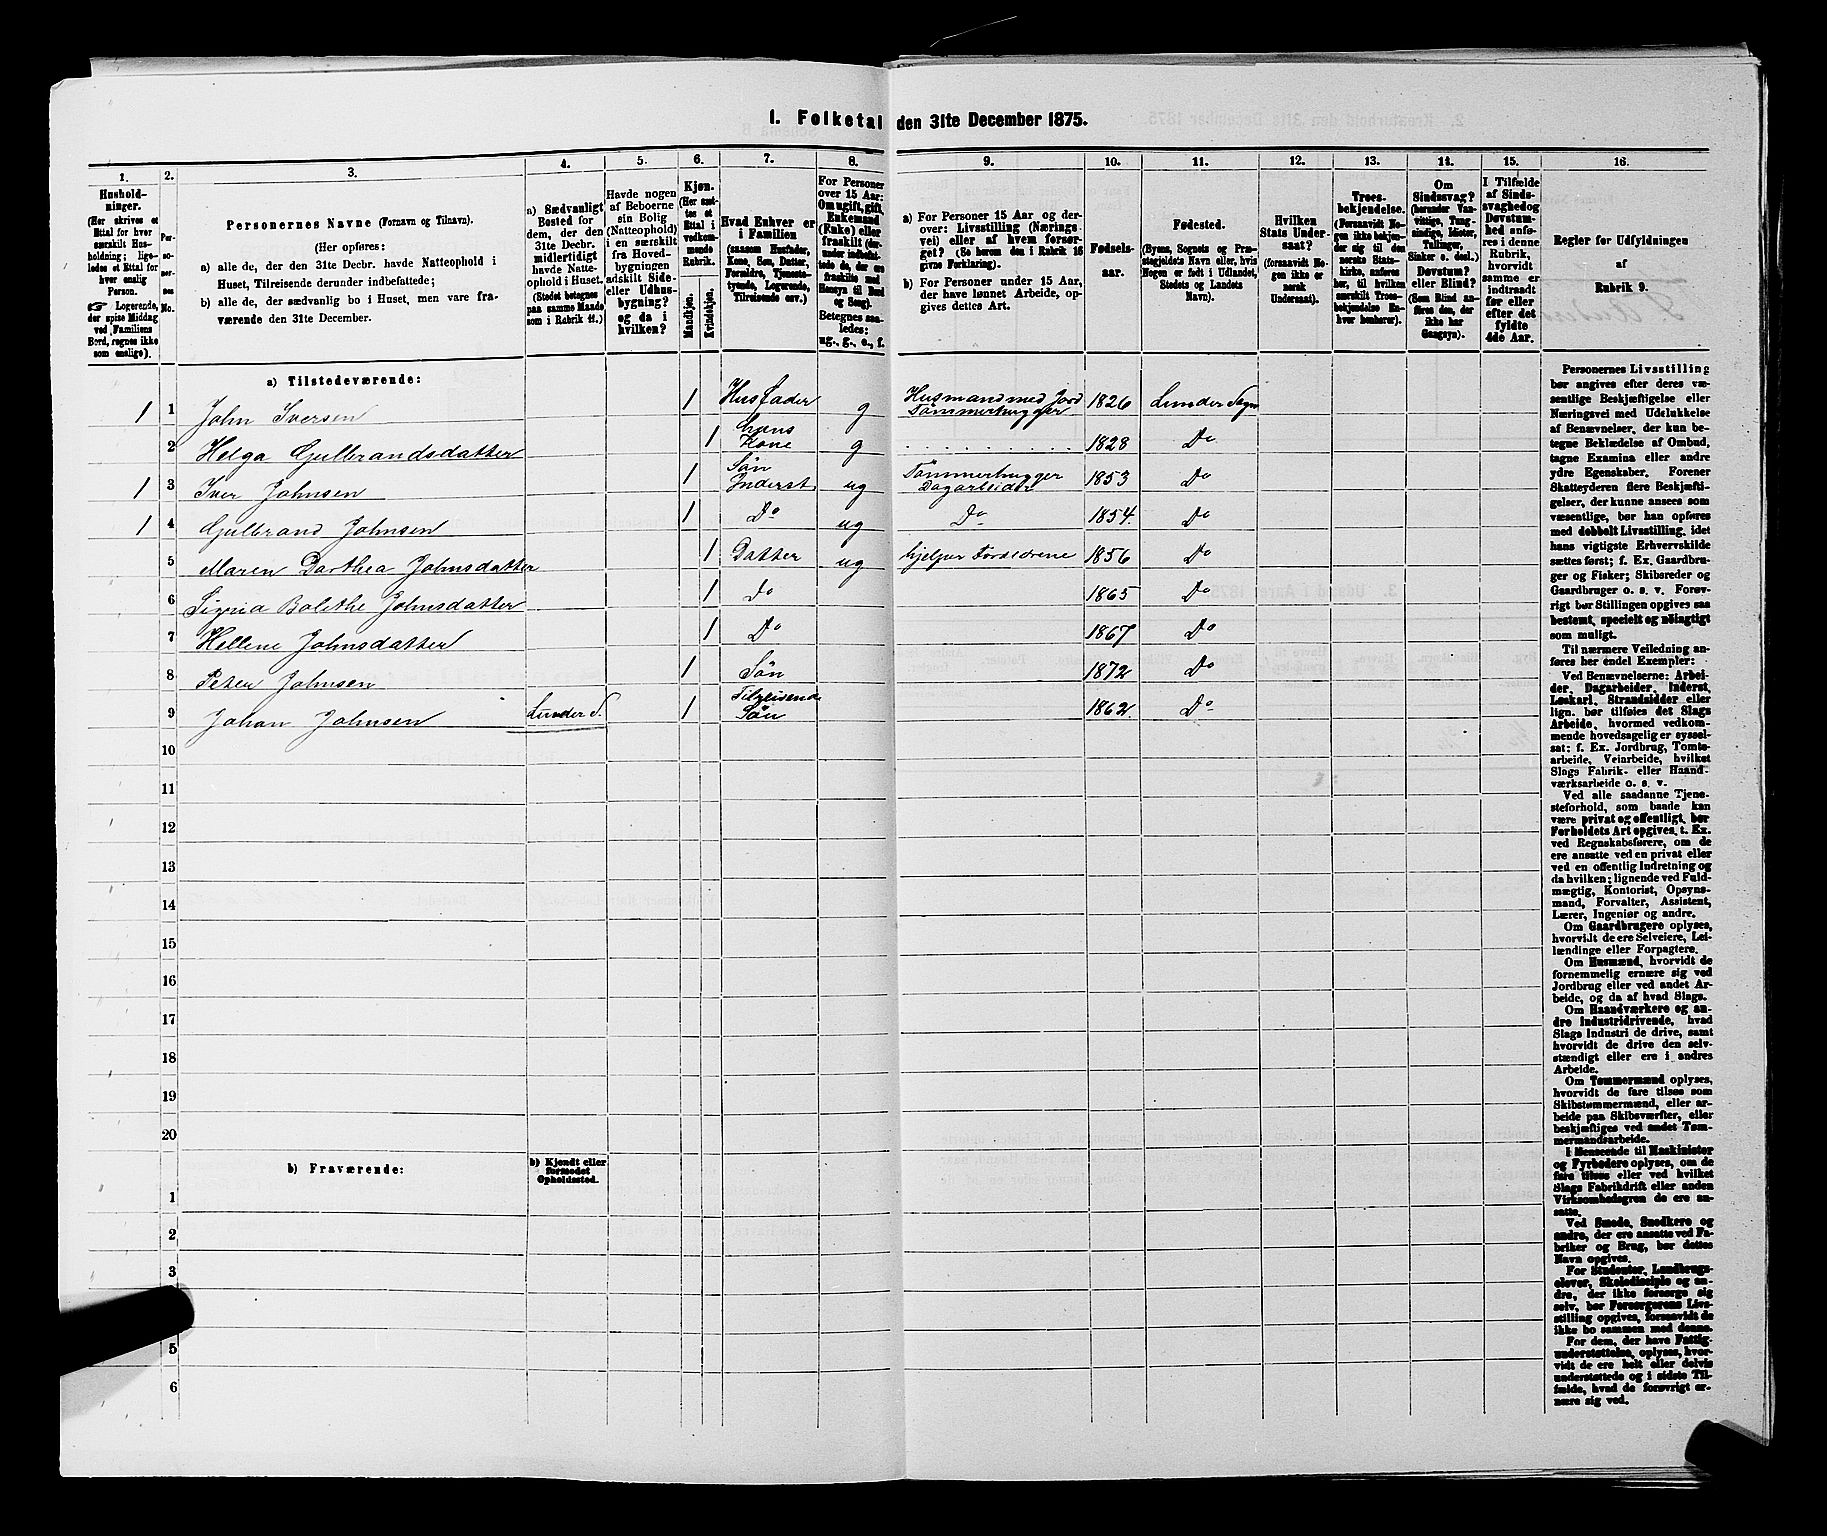 1. Folketal den 31te December 1875.
1. 2. 3. 4. 5. 6. 7. 8. 9. 10. 11. 12. 13. 14. 15. 16.
Hushold-
ninger.
(Her skrives et
Ettal for hver
særskilt Hus-
holdning; lige-
ledes et Ettal for
hver enslig
Person.
☞ Logerende,
der spise Middag
ved Familiens
Bord, regnes ikke
som enslige).
Per-
so-
ner-
nes
No.
Personernes Navne (Fornavn og Tilnavn).
(Her opføres:
a) alle de, der den 31te Decbr. havde Natteophold i
Huset, Tilreisende derunder indbefattede;
b) alle de, der sædvanlig bo i Huset, men vare fra-
værende den 31te December.
a) Sædvanligt
Bosted for
dem, der den
31te Decbr.
midlertidigt
havde Natte-
ophold i Huset.
(Stedet betegnes
paa samme Maade
som i Rubrik 11.)
Havde nogen
af Beboerne
sin Bolig
(Natteophold)
i en særskilt
fra Hoved-
bygningen
adskilt Side-
eller Udhus-
bygning?
og da i
hvilken?
Kjøn.
(Her sæt-
tes et
Ettal i
vedkom-
mende
Rubrik.
Mandkjøn.
Kvindekjøn.
Hvad Enhver er
i Familien
(saasom Husfader,
Kone, Søn, Datter,
Forældre, Tjeneste-
tyende, Logerende,
Tilreisende osv.)
For Personer
over 15 Aar:
Om ugift, gift,
Enkemand
(Enke) eller
fraskilt (der-
under indbefat-
tede de, der ere
fraskilte med
Hensyn til Bord
og Seng).
Betegnes saa-
ledes:
ug., g., e., f.
a) For Personer 15 Aar og der-
over: Livsstilling (Nærings-
vei) eller af hvem forsør-
get? (Se herom den i Rubrik 16
givne Forklaring).
b) For Personer under 15 Aar,
der have lønnet Arbeide, op-
gives dettes Art.
Fødsels-
aar.
Fødested.
(Byens, Sognets og Præ-
stegjeldets Navn eller, hvis
Nogen er født i Udlandet,
Stedets og Landets
Navn).
Hvilken
Stats Under-
saat?
(foraavidt No-
gen ikke er
norsk
Undersaat).
Troes-
bekjendelse.
(Foraavidt No-
gen ikke bekjen-
der sig til den
norske Stats-
kirke, anføres
her, til hvilken
særskilt Troes-
bekjendelse En-
hver henhører).
Om
Sindssvag?
(herunder Van-
vittige, Tung-
sindige, Idioter,
Tullinger,
Sinker o. desl.)
Døvstum?
eller Blind?
(Som Blind an-
føres den, der
ikke har
Gangsyn).
I Tilfælde
af Sinds-
svaghed og
Døvstum-
hed anfø-
res i denne
Rubrik,
hvorvidt
samme er
indtraadt
før eller
efter det
fyldte
4de Aar.
Regler for Udfyldningen
af
Rubrik 9.
a) Tilstedeværende:
1 1 John Iversen 1 Husfader g Husmand med Jord Tømmerhugger 1826 Lunder Sogn
2 Helga Gulbrandsdatter 1 hans Kone g 1828 Do
1 3 Iver Johnsen 1 Søn Inderst ug Tømmerhugger Dagarbeider 1853 Do
1 4 Gulbrand Johnsen 1 Do ug Do 1854 Do
5 Maren Dorthea Johnsdatter 1 Datter ug hjelper Forældrene 1856 Do
6 Signa Bolethe Johnsdatter 1 Do 1865 Do
7 Hellene Johnsdatter 1 Do 1867 Do
8 Peter Johnsen 1 Søn 1872 Do
9 Johan Johnsen Lunder S. 1 Tilreisende Søn 1862 Do
10
11
12
13
14
15
16
17
18
19
20
b) Fraværende:
b) Kjendt eller
formodet
Opholdssted.
1
2
3
5
6
Personernes Livsstilling
bør angives efter deres væ-
sentlige Beskjæftigelse eller
Næringsvei med Udelukkelse
af Benævnelser, der kun be-
tegne Beklædelse af Ombud,
tagne Examina eller andre
ydre Egenskaber. Forener
Skatteyderen flere Beskjæfti-
gelser, der kunne ansees som
væsentlige, bør han opføres
med dobbelt Livsstilling, idet
hans vigtigste Erhvervskilde
sættes først; f. Ex. Gaardbru-
ger og Fisker; Skibsreder og
Gaardbruger o. s. v. Forøv-
rigt bør Stillingen opgives saa
bestemt, specielt og nøiagtigt
som muligt.
Til nærmere Veiledning an-
føres her endel Exempler:
Ved Benævnelserne: Arbei-
der, Dagarbeider, Inderst,
Løskarl, Strandsidder eller
lign. bør tilføies det Slags
Arbeide, hvormed vedkom-
mende hovedsagelig er syssel-
sat; f. Ex. Jordbrug, Tomte-
arbeide, Veiarbeide, hvilket
Slags Fabrik- eller Haand-
værksarbeide o. s. v.
Ved alle saadanne Tjene-
steforhold, som baade kan
være privat og offentligt, bør
Forholdets Art opgives, t. Ex.
ved Regnskabsførere, om de
ere ansatte ved en privat eller
ved en offentlig Indretning og
da hvilken; lignende ved Fuld-
mægtig, Kontorist, Opsyns-
mand, Forvalter, Assistent,
Lærer, Ingeniør og andre.
Om Gaardbrugere oplyses,
hvorvidt de ere Selveiere, Lei-
lændinge eller Forpagtere.
Om Husmænd, hvorvidt de
fornemmelig ernære sig ved
Jordbrug eller ved andet Ar-
beide, og da af hvad Slags.
Om Haandværkere og an-
dre Industridrivende, hvad
Slags Industri de drive, samt
hvorvidt de drive den selv-
stændigt eller ere i andres
Arbeide.
Om Tømmermænd oplyses,
hvorvidt de fare tilsøs som
Skibstømmermænd, eller ar-
beide paa Skibsværfter, eller
beskjæftiges ved andet Tøm-
mermandsarbeide.
I Henseende til Maskinister
og Fyrbødere oplyses, om de
fare tilsøs eller ved hvilket
Slags Fabrikdrift eller anden
Virksomhedsgren de ere an-
satte.
Ved Smede, Snedkere og
andre, der ere ansatte ved Fa-
briker og Brug, bør dettes
Navn opgives.
For Studenter, Landbrugs-
elever, Skoledisciple og an-
dre, der ikke forsørge sig
selv, bør Forsørgerens Livs-
stilling opgives, forsaavidt de
ikke bo sammen med denne.
For dem, der have Fattig-
understøttelse, oplyses, hvor-
vidt de ere helt eller delvis
understøttede og i sidste Til-
fælde, hvad de forøvrigt er-
nære sig ved.